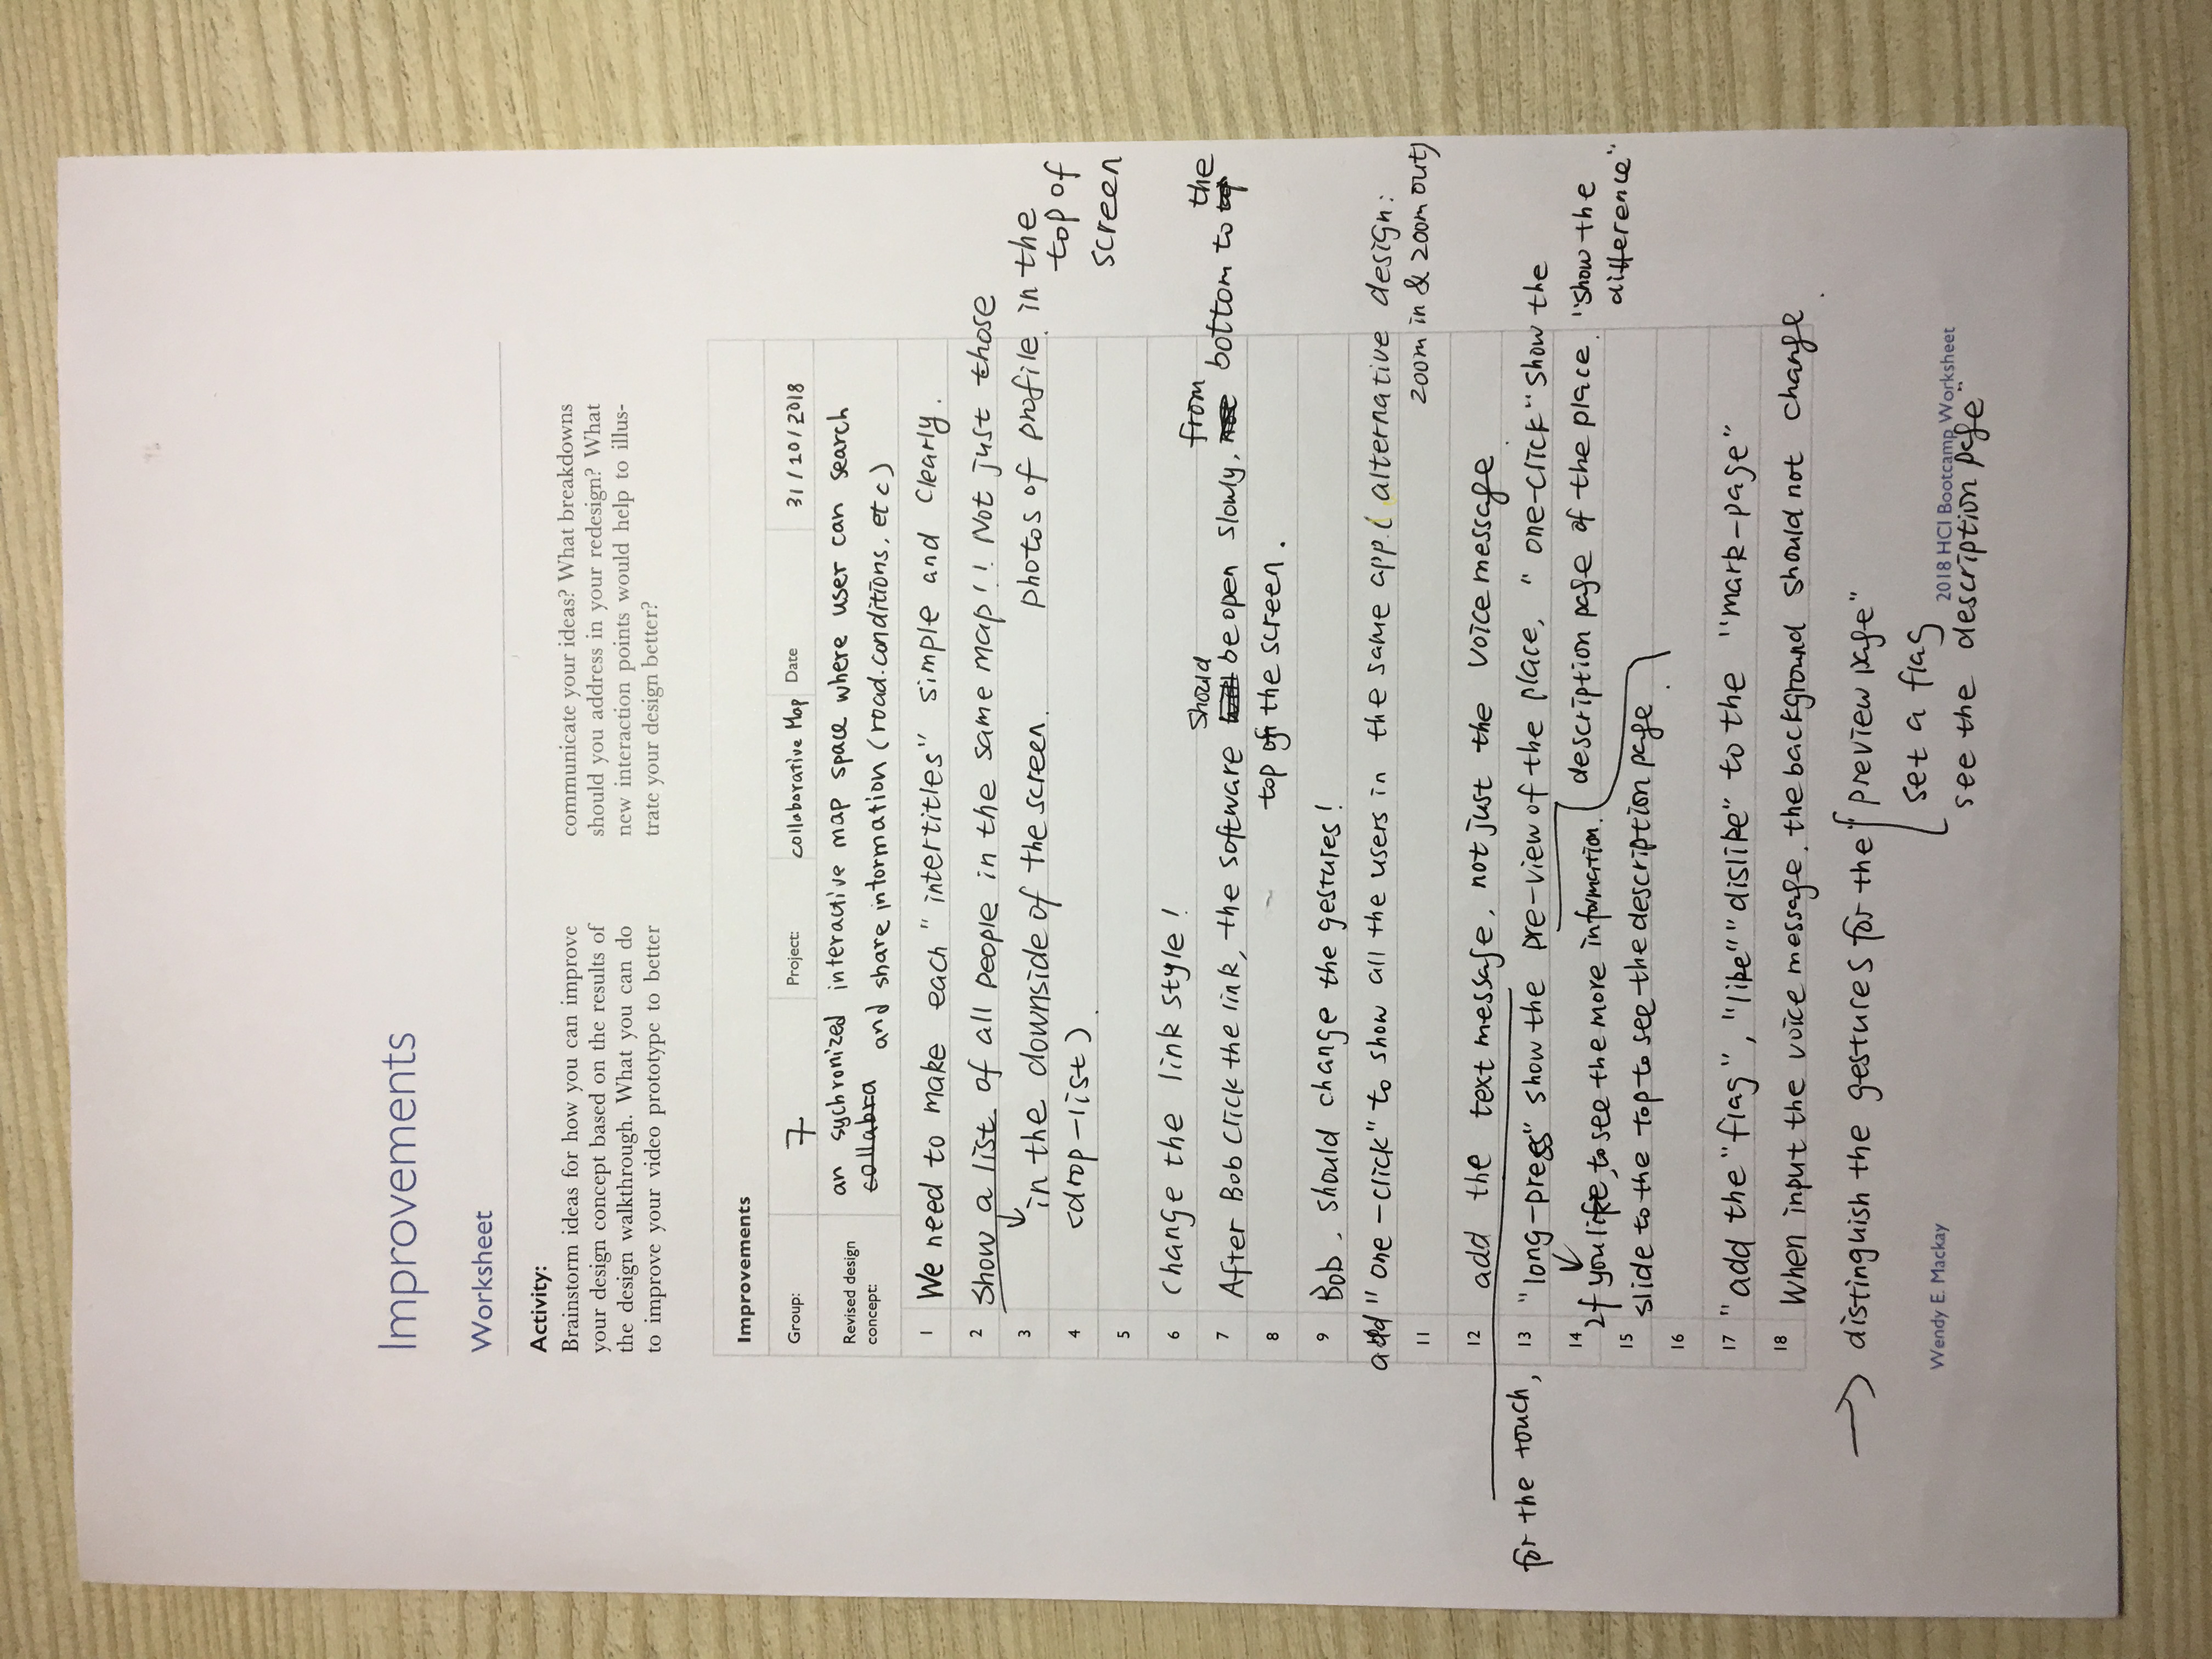 Improvements
Worksheet
Activity:
Brainstorm ideas for how you can improve
your design concept based on the results of
the design walkthrough. What you can do
to improve your video prototype to better
communicate your ideas? What breakdowns
should you address in your redesign? What
new interaction points would help to illus-
trate your design better?
Improvements
Group: 7 Project: collaborative Map Date 31/10/2018
Revised design concept:
an sychronized interactive map space where user can search
collabra and share information (road.conditions, etc)
1 We need to make each "intertitles" simple and Clearly.
2 Show a list of all people in the same map!! Not just those
3 in the downside of the screen. photos of profile in the
top of
4 (drop-list)
screen
5
6 Change the link style!
should from the
7 After Bob Click the link, the software be open slowly, bottom to
8 top of the screen.
9 Bob, should change the gestures!
add "one-click" to show all the users in the same app. (alternative design:
11 zoom in & zoom out)
12 add the text message, not just the voice message
for the touch, 13 "long-press" show the pre-view of the place, "one-click" show the
14 If you like, to see the more information. description page of the place. "show the
difference"
15 slide to the top to see the description page.
16
17 "add the "flag", "like" "dislike" to the "mark-page"
18 When input the voice message, the background should not change.
→ distinguish the gestures for the "preview page"
set a flag
Wendy E. Mackay 2018 HCI Bootcamp Worksheet
see the description page"